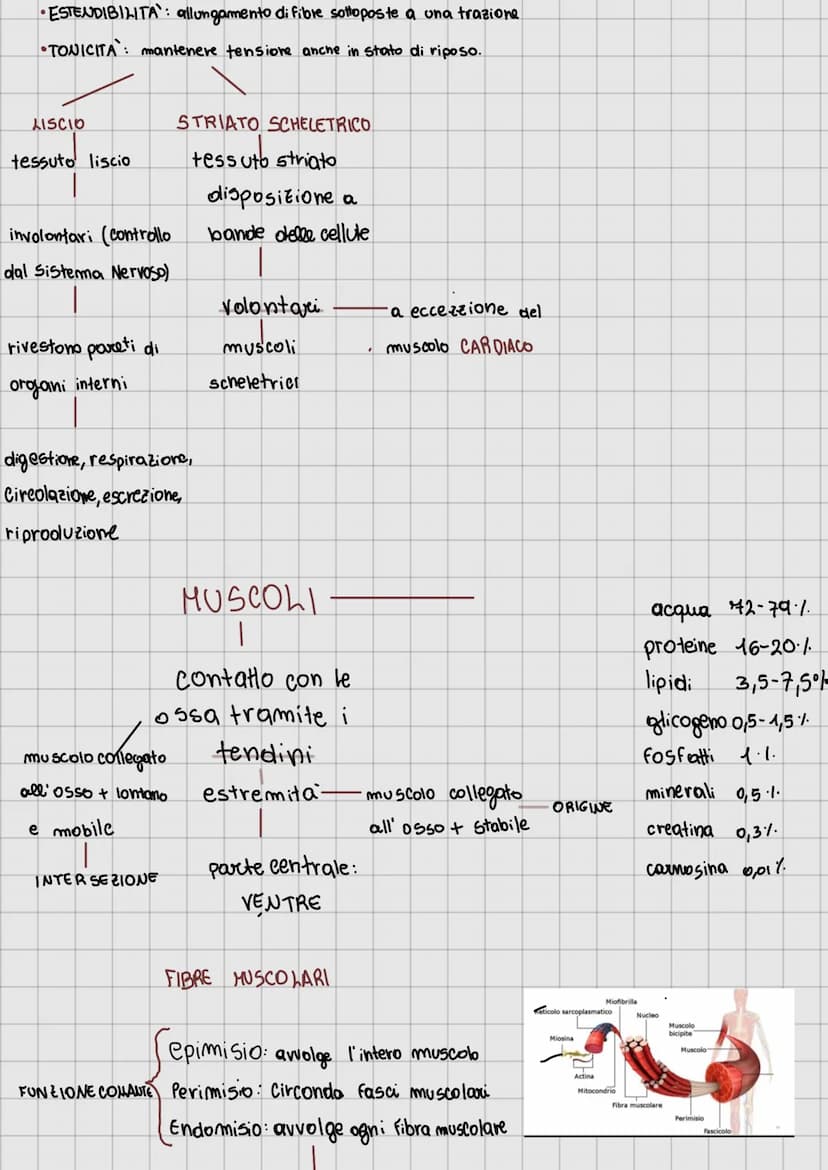 • ESTENDIBILITA`: allungamento di fibre sottoposte a una trazione
• TONICITA`: mantenere tensione anche in stato di riposo.
LISCIO
tessuto liscio
involontari (controllo
dal Sistema Nervoso)
rivestono pareti di
organi interni
digestione, respirazione,
Circolazione, escrezione,
riproduzione
STRIATO SCHELETRICO
tessuto striato
disposizione a
bande delle cellule
volontari
muscoli
scheletrici
a eccezzione del
muscolo CARDIACO
MUSCOLI
contatto con le
ossa tramite i
tendini
estremità
parte centrale:
VENTRE
muscolo collegato
all'osso + lontano
e mobile
INTERSEZIONE
muscolo collegato
all'osso + stabile
ORIGINE
acqua 72-79%
proteine 16-20%
lipidi 3,5-7,5%
glicogeno 0,5-1,5%
fosfatti 1%
minerali 0,5%
creatina 0,3%
carnosina 0,01%
FIBRE MUSCOLARI
FUNZIONE COLLANTE
Epimisio: avvolge l'intero muscolo
Perimisio: Circonda fasci muscolari
Endomisio: avvolge ogni fibra muscolare
Miofibrilla
Reticolo sarcoplasmatico
Nucleo
Muscolo
bicipite
Miosina
Muscolo
Actina
Mitocondrio
Fibra muscolare
Perimisio
Fascicolo